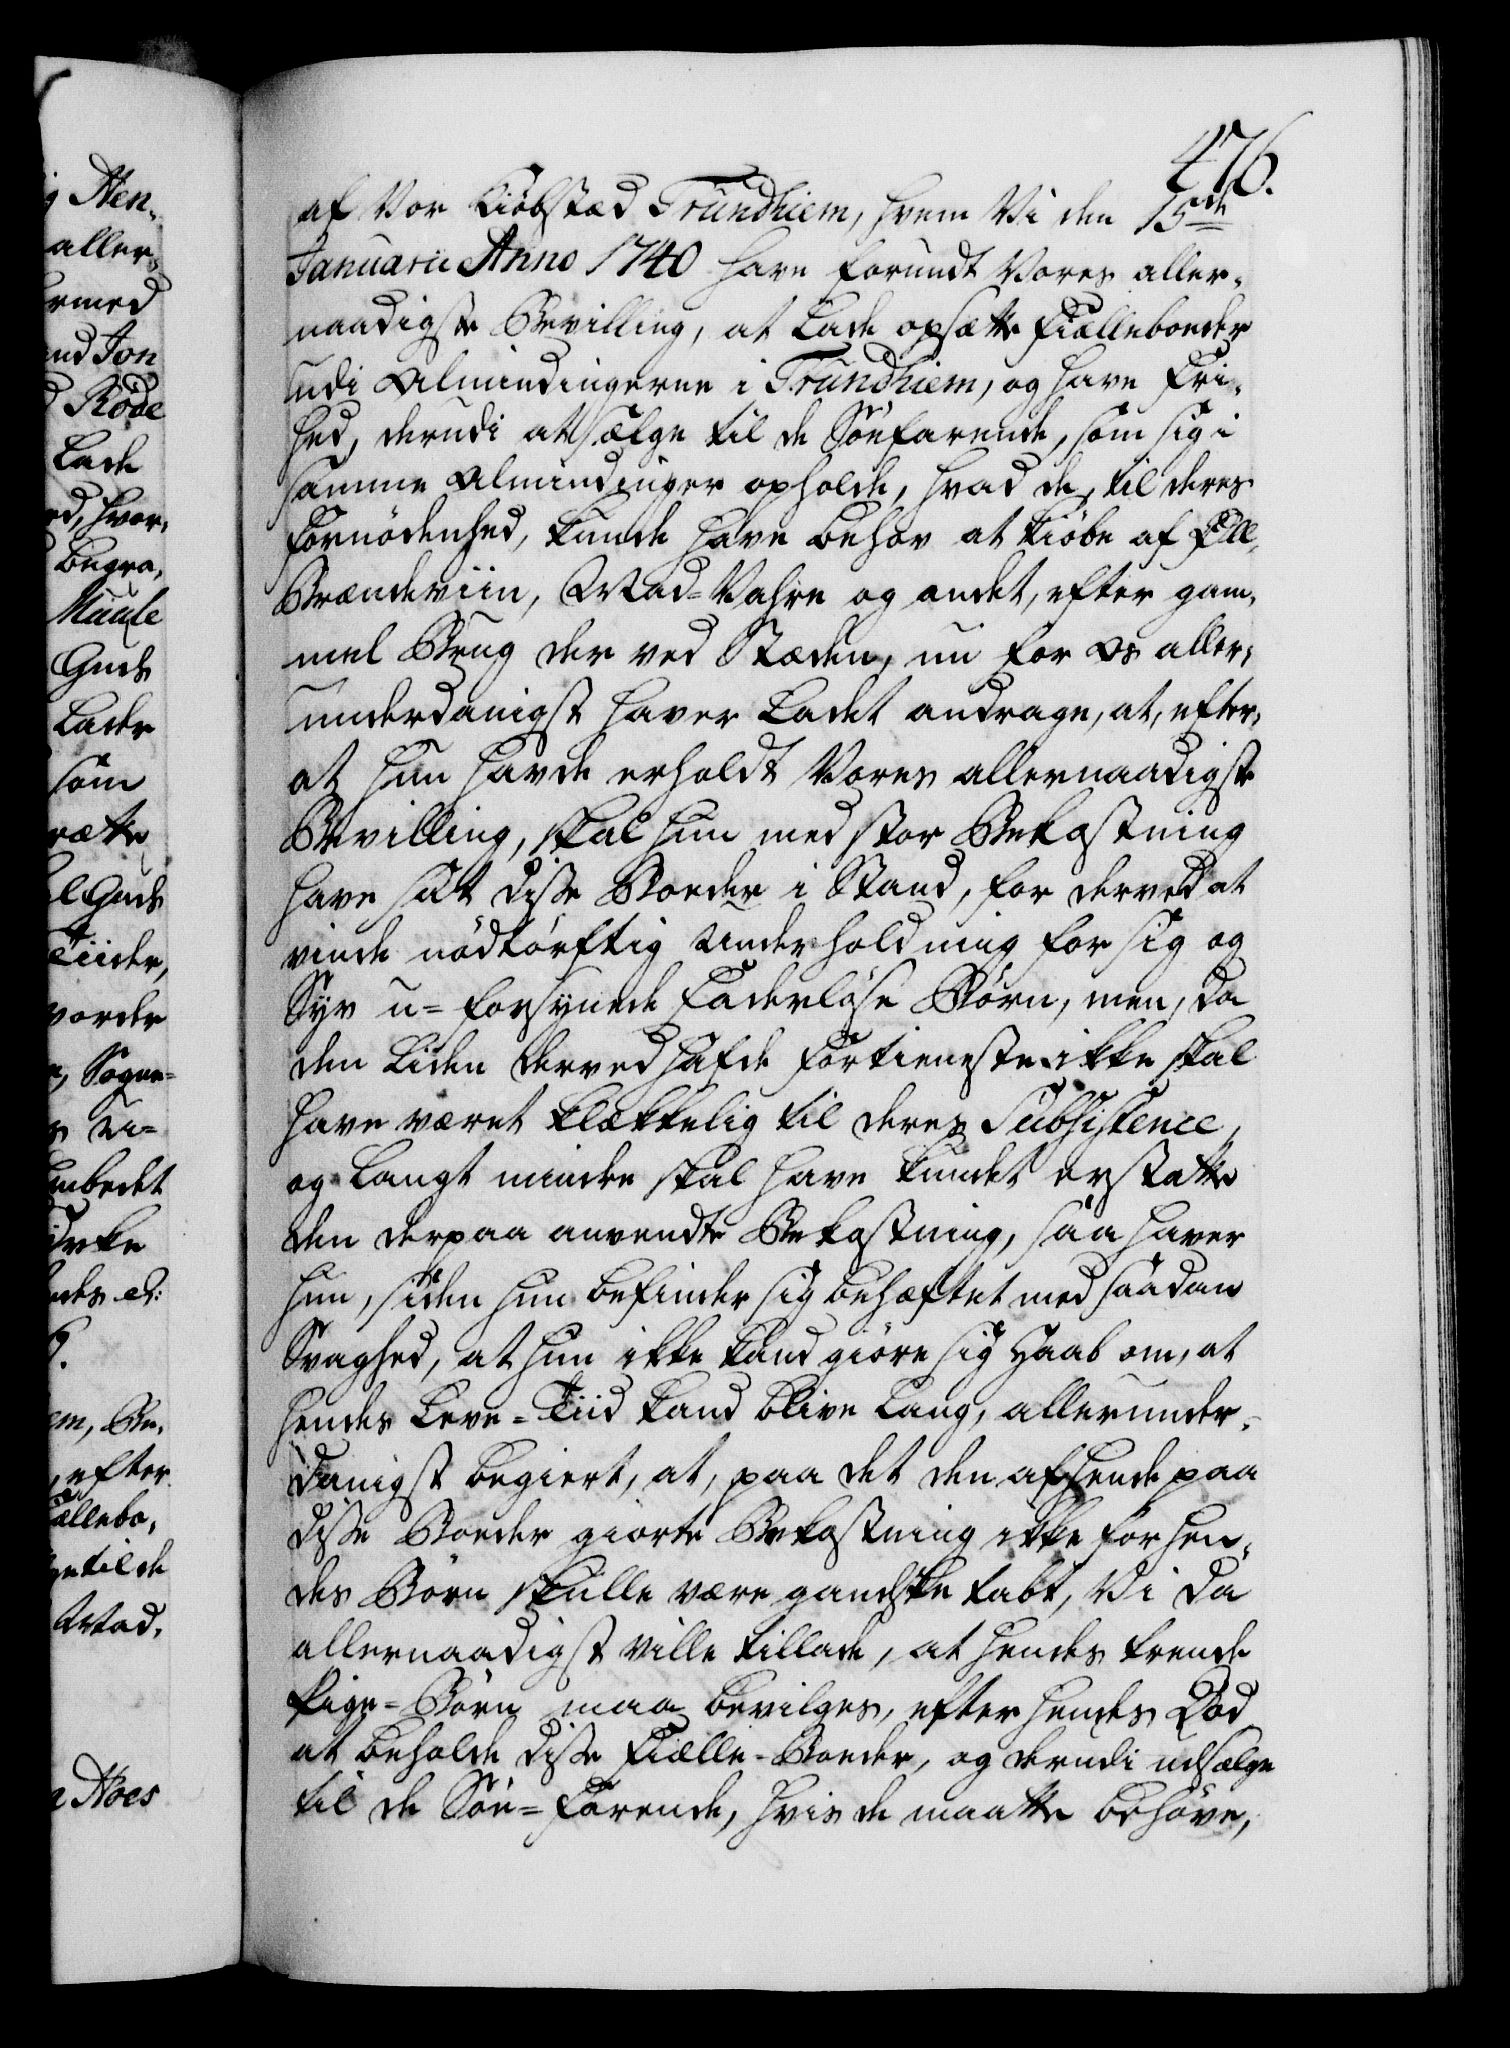 476.
af Vor Kiöbstæd Trundhiem, hvem Vi den 15de
Januarii Anno 1740 have forundt Vores aller-
naadigste Bevilling, at lade opsætte Fiælleboeder
udi Almindingerne i Trundhiem, og have Fri-
hed, derudi at sælge til de Söefarende, som sig i
samme Almindinger opholde, hvad de, til deres
Fornödenhed, kunde have behov at kiöbe af Öll,
Brændeviin, Mad-Vahre og andet, efter gam-
mel Brug der ved Stæden, nu for Os aller-
underdanigst haver ladet andrage, at, efter-
at hun havde erholdt Vores allernaadigste
Bevilling, skal hun med stor Bekostning
have sat disse Boeder i Stand, for derved at
vinde nödtörftig Underholdning for sig og
Syv u-forsÿnede Faderlöse Börn, men, da
den liden derved hafde Fortieneste ikke skal
have været klækkelig til deres Subsistence,
og langt mindre skal have kundet erstatte
den derpaa anvendte Bekostning, saa haver
hun, siden hun befinder sig behæftet med saadan
Svaghed, at hun ikke kand giöre sig Haab om, at
hendes Leve-Tiid kand blive lang, allerunder-
danigst begiert, at, paa det den af hende paa
disse Boeder giorte Bekostning ikke for hen-
des Börn skulle være gandske tabt, Vi da
allernaadigst ville tillade, at hendes trende
Pige-Börn maa bevilges, efter hendes Död
at beholde disse Fiælle-Boeder, og derudi udsælge
til de Söe-Farende, hvis de maatte behöve,